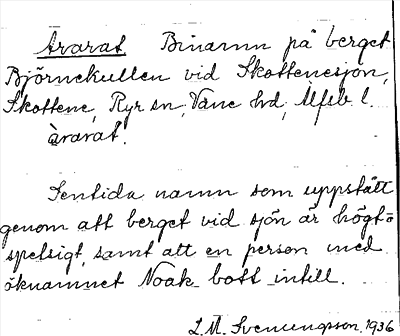 Ararat. Binamn på berget
Björnekullen vid Skottenesjön,
Skottene, Ryr sn, Väne hd, Älfsb l.
àrarat.
Sentida namn som uppstått
genom att berget vid sjön är högt o
spetsigt, samt att en person med
öknamnet Noak bott intill.
L.M. Svenungsson. 1936